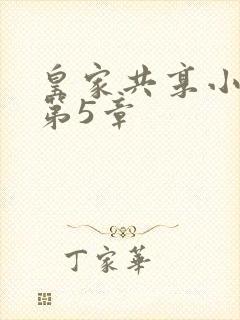 皇家共享小
第5章
丁家華